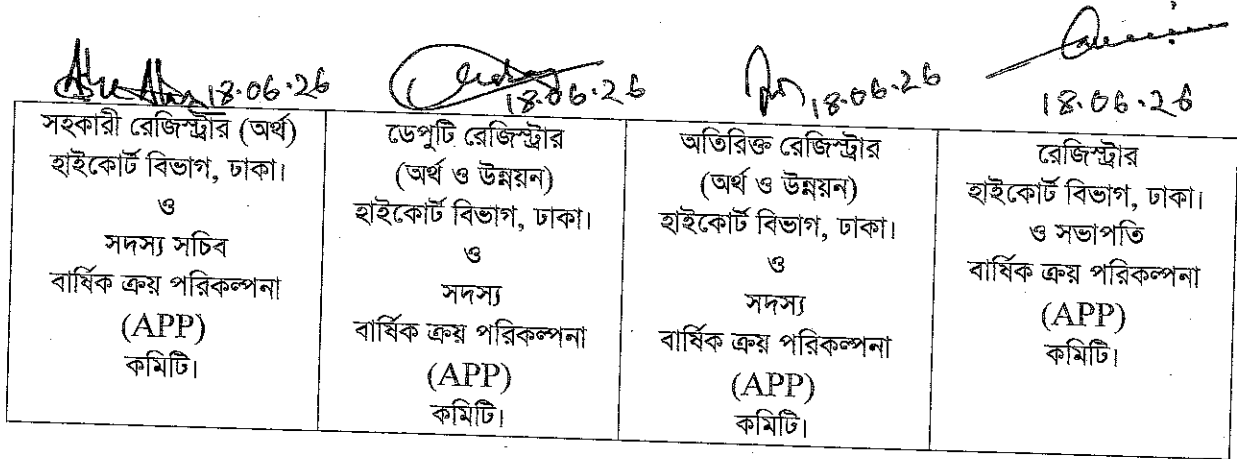 18.06.26
18.06.26
18.06.26
18.06.26
সহকারী রেজিস্ট্রার (অর্থ)
হাইকোর্ট বিভাগ, ঢাকা।
ও
সদস্য সচিব
বার্ষিক ক্রয় পরিকল্পনা
(APP)
কমিটি।
ডেপুটি রেজিস্ট্রার
(অর্থ ও উন্নয়ন)
হাইকোর্ট বিভাগ, ঢাকা।
ও
সদস্য
বার্ষিক ক্রয় পরিকল্পনা
(APP)
কমিটি।
অতিরিক্ত রেজিস্ট্রার
(অর্থ ও উন্নয়ন)
হাইকোর্ট বিভাগ, ঢাকা।
ও
সদস্য
বার্ষিক ক্রয় পরিকল্পনা
(APP)
কমিটি।
রেজিস্ট্রার
হাইকোর্ট বিভাগ, ঢাকা।
ও সভাপতি
বার্ষিক ক্রয় পরিকল্পনা
(APP)
কমিটি।